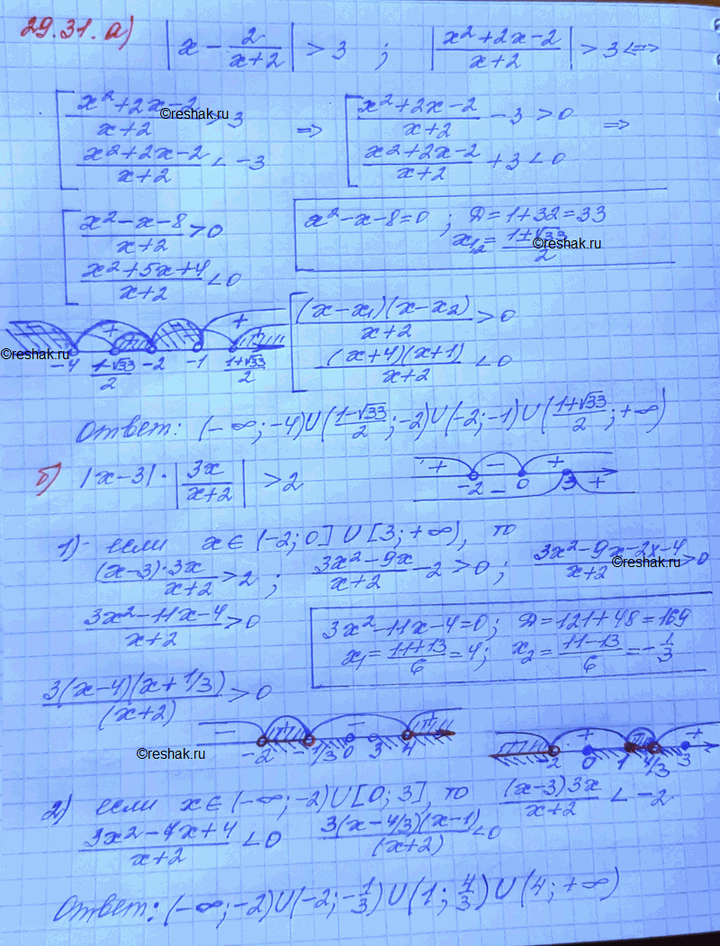 29.31. а) |x - 2/(x+2)| > 3 ; |(x²+2x-2)/(x+2)| > 3 <=>
[ (x²+2x-2)/(x+2) > 3 => [ (x²+2x-2)/(x+2) - 3 > 0 =>
(x²+2x-2)/(x+2) < -3 (x²+2x-2)/(x+2) + 3 < 0
©reshak.ru
[ (x²-x-8)/(x+2) > 0 x²-x-8=0 ; Д=1+32=33
(x²+5x+4)/(x+2) < 0 x₁,₂ = (1±√33)/2
©reshak.ru
+ + [ ((x-x₁)(x-x₂))/(x+2) > 0
©reshak.ru
-4 (1-√33)/2 -2 -1 (1+√33)/2 ((x+4)(x+1))/(x+2) < 0
Ответ: (-∞;-4)∪((1-√33)/2;-2)∪(-2;-1)∪((1+√33)/2;+∞)
б) |x-3|·|3x/(x+2)| > 2 + - + +
-2 0 3
1) если x∈(-2;0]∪[3;+∞), то
((x-3)·3x)/(x+2) > 2 ; (3x²-9x)/(x+2) - 2 > 0 ; (3x²-9x-2x-4)/(x+2) > 0
©reshak.ru
(3x²-11x-4)/(x+2) > 0 3x²-11x-4=0; Д=121+48=169
x₁ = (11+13)/6 = 4; x₂ = (11-13)/6 = -1/3
(3(x-4)(x+1/3))/(x+2) > 0
- + - + +
-2 -1/3 0 3 4 -2 0 1 4/3 3
©reshak.ru
2) если x∈(-∞;-2)∪[0;3], то ((x-3)3x)/(x+2) < -2
(3x²-7x+4)/(x+2) < 0 (3(x-4/3)(x-1))/(x+2) < 0
Ответ: (-∞;-2)∪(-2;-1/3)∪(1;4/3)∪(4;+∞)